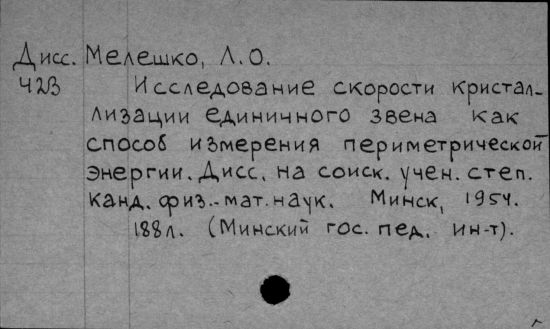 Дисс. Мелешко, Л.О.
423 Исследование скорости кристал-
лизации единичного звена как
способ измерения периметрической
энергии. Дисс. на соиск. учен. степ.
канд. физ.-мат. наук. Минск, 1954.
188л. (Минский гос. пед. ин-т).
г